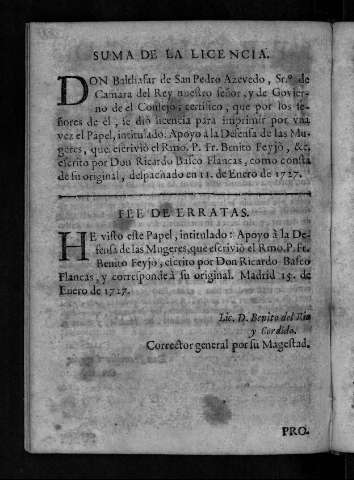 SUMA DE LA LICENCIA.
DON Balthasar de San Pedro Azevedo, Sr.º de
Camara del Rey nuestro señor, y de Govier-
no de el Consejo; certifico, que por los se-
ñores de èl, se diò licencia para imprimir por vna
vez el Papel, intitulado: Apoyo à la Defensa de las Mu-
geres, que escriviò el Rmo. P. Fr. Benito Feyjò, &c.
escrito por Don Ricardo Basco Flancas, como consta
de su original, despachado en 11. de Enero de 1727.
FEE DE ERRATAS.
HE visto este Papel, intitulado: Apoyo à la De-
fensa de las Mugeres, que escriviò el Rmo. P. Fr.
Benito Feyjo, escrito por Don Ricardo Basco
Flancas, y corresponde à su original. Madrid 15. de
Enero de 1727.
Lic. D. Benito del Rio
y Cordido.
Corrector general por su Magestad.
PRO.